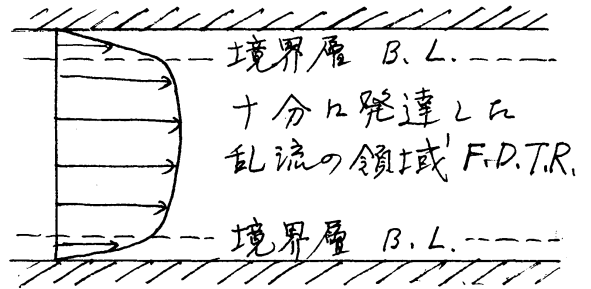 境界層 B.L.
十分に発達した
乱流の領域 F.D.T.R.
境界層 B.L.